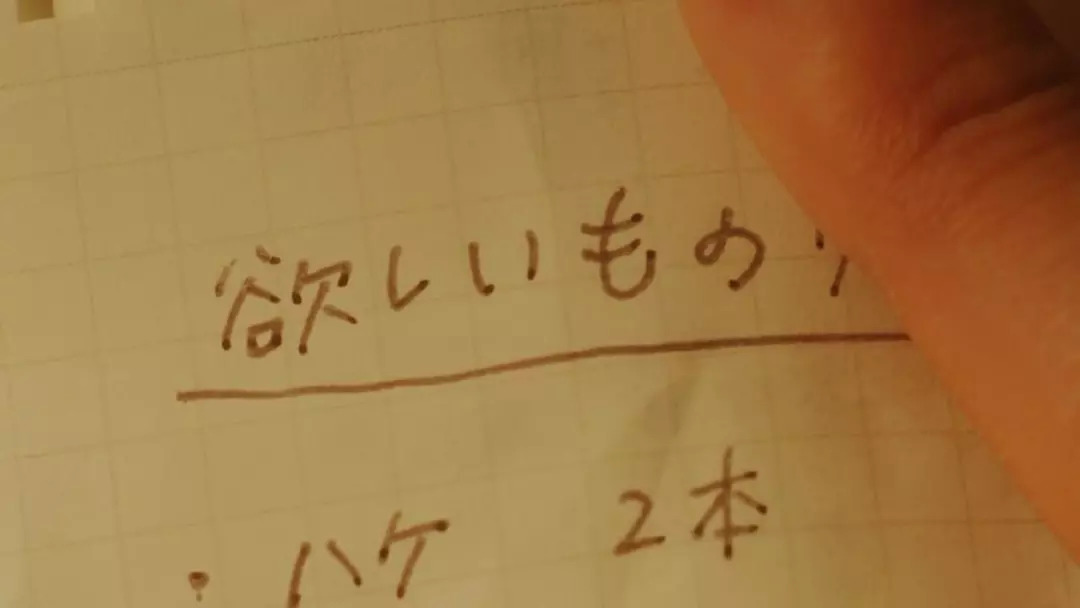 欲しいもの
・ハケ 2本